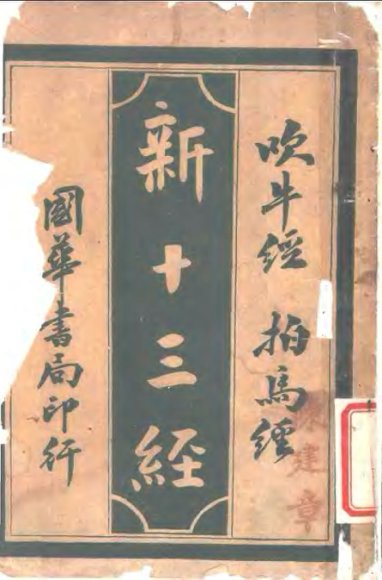 吹牛經 拍馬經
新十三経
國華書局印行
建章